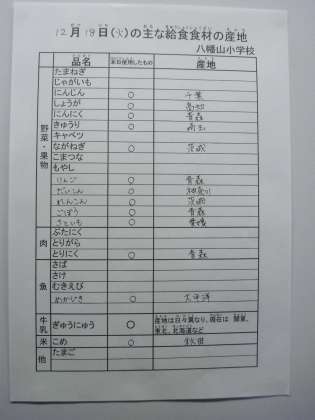 12月19日(火)の主な給食食材の産地
八幡山小学校
品名 本日使用したもの 産地
野菜・果物
たまねぎ
じゃがいも
にんじん ○ 千葉
しょうが ○ 高知
にんにく ○ 青森
きゅうり ○ 埼玉
キャベツ
ながねぎ ○ 茨城
こまつな
もやし
りんご ○ 青森
だいこん ○ 神奈川
れんこん ○ 茨城
ごぼう ○ 青森
さといも ○ 愛媛
肉
ぶたにく
とりがら
とりにく ○ 青森
魚
さば
さけ
むきえび
めかじき ○ 太平洋
牛乳 ぎゅうにゅう ○ 産地は日々異なり、現在は 関東、
東北、北海道など
米 こめ ○ 秋田
他 たまご